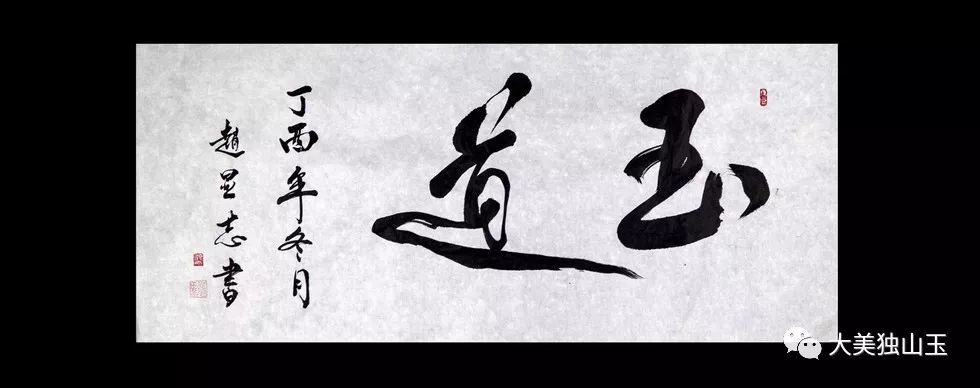 玉道
丁酉年冬月
趙显志書
大美独山玉